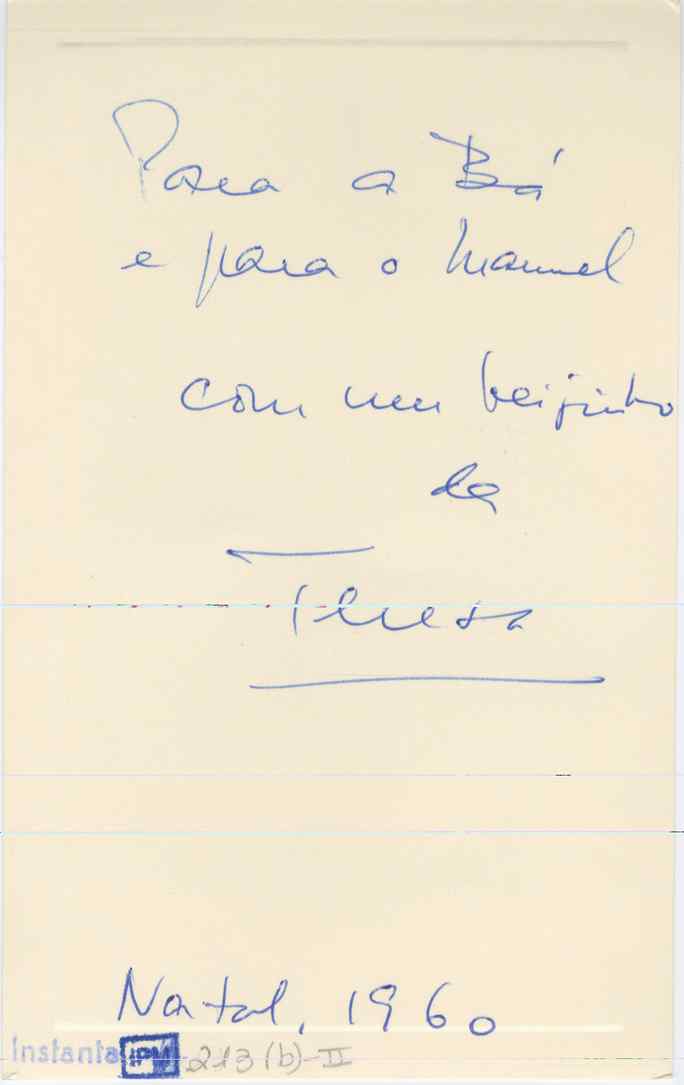 Para a Bá
e para o Manuel
com um beijinho
da
Teresa
Natal, 1960
Instanta IPM 213 (b)-II